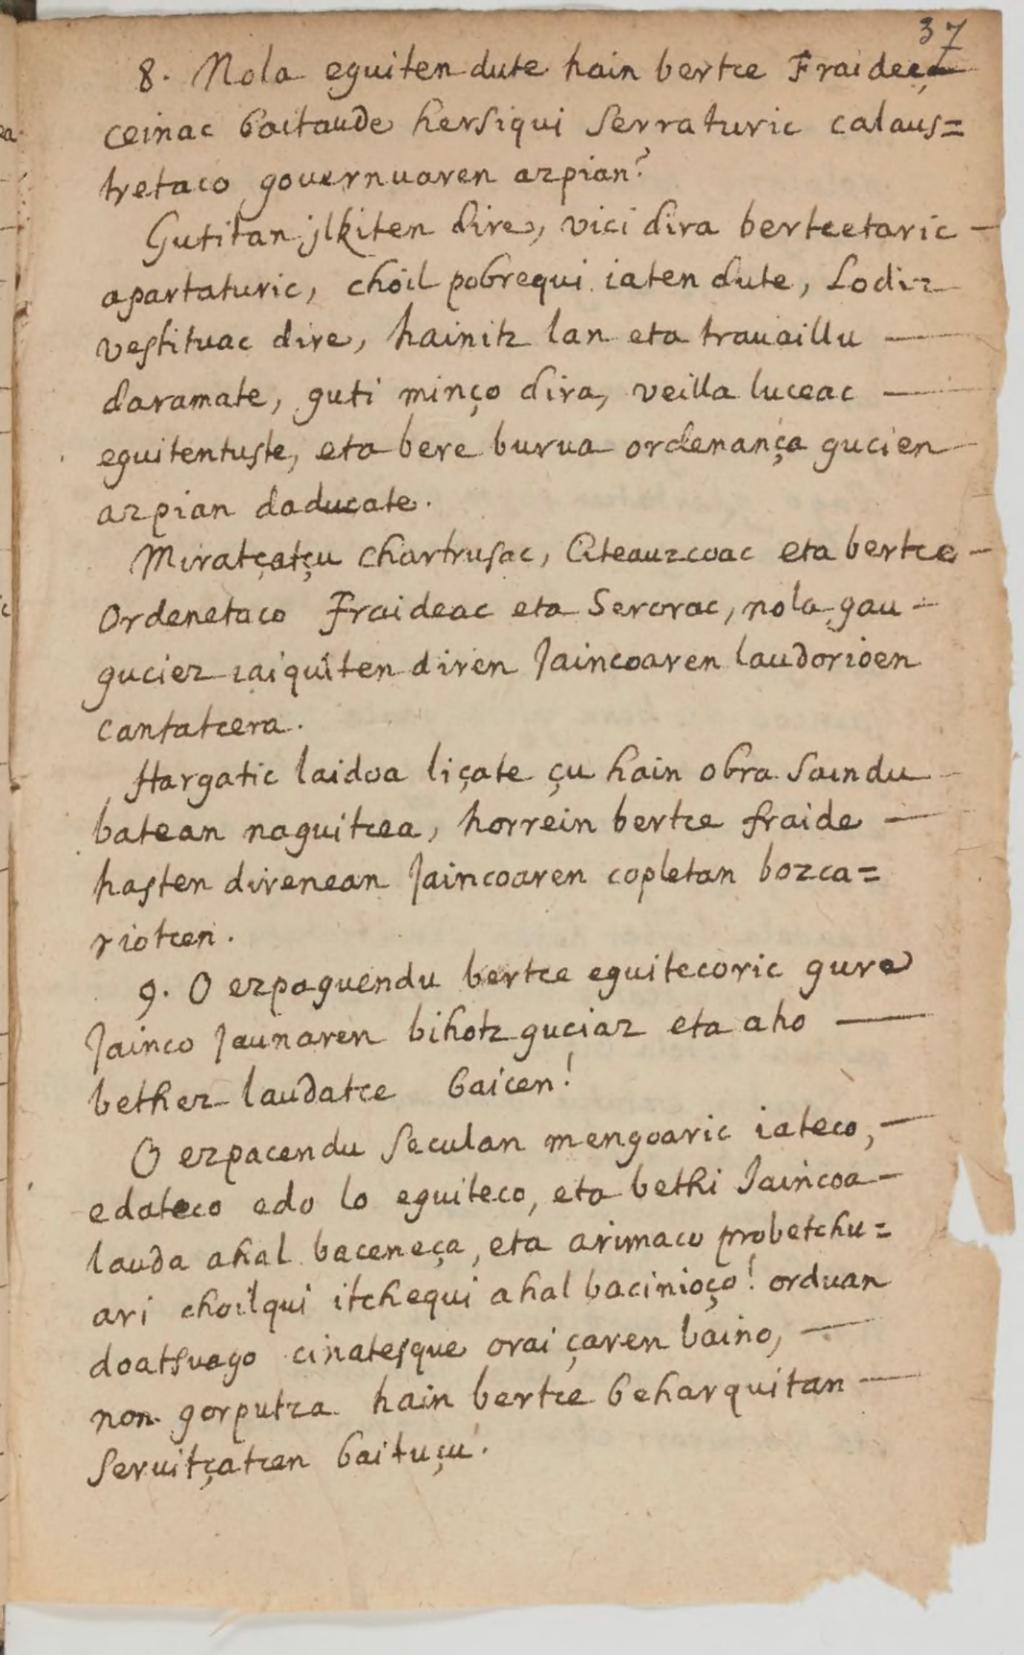 37
8. Nola eguiten dute hain bertce Fraideeç
ceinac baitaude hersiqui serraturic calaus=
tretaco gouernuaren azpian?
Gutitan jlkiten dire, vici dira bertcetaric —
apartaturic, choil pobrequi iaten dute, Lodiz
vestituac dire, hainitz lan eta trauaillu —
daramate, guti minço dira, veilla luceac —
eguitentuste, eta bere burua ordenança gucien
azpian daducate.
Miratçatçu chartrusac, Citeauzcoac eta bertce —
Ordenetaco Fraideac eta Serorac, nola gau —
guciez iaiquiten diren Jaincoaren laudorioen
cantatcera.
Hargatic laidoa liçate çu hain obra saindu
batean naguitcea, horrein bertce fraide —
hasten direnean Jaincoaren copletan bozca=
riotcen.
9. O ezpaguendu bertce eguitecoric gure
Jainco Jaunaren bihotz guciaz eta aho —
bethez laudatce baicen!
O ezpacendu seculan mengoaric iateco, —
edateco edo lo eguiteco, eta bethi Jaincoa —
lauda ahal baceneça, eta arimaco probetchu=
ari choilqui itchequi ahal bacinioço! orduan
doatsuago cinatesque orai çaren baino, —
non gorputza hain bertce beharquitan —
seruitçatcen baituçu.